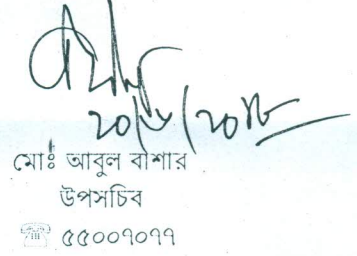 ২০/৬/২০১৮
মোঃ আবুল বাশার
উপসচিব
☏ ৫৫০০৭০৭৭